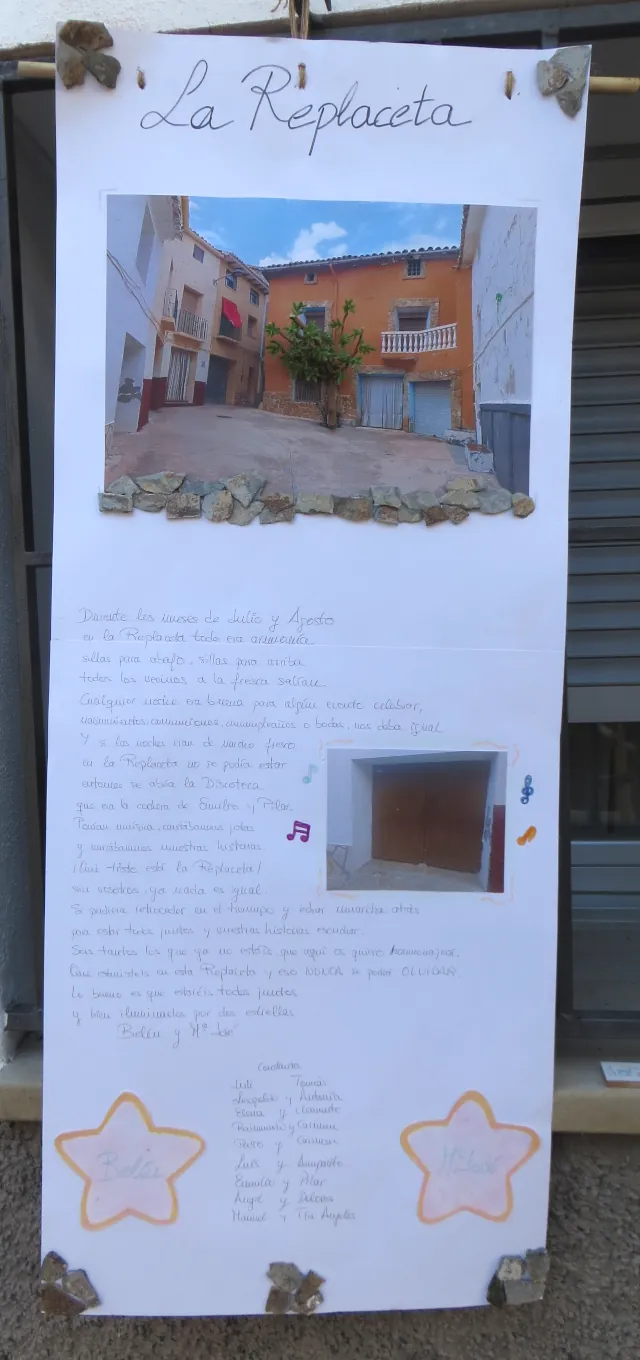 La Replaceta
Durante los meses de Julio y Agosto
en la Replaceta todo era armonía
sillas para abajo, sillas para arriba
todos los vecinos a la fresca salían.
Cualquier noche era buena para algún evento celebrar,
nacimientos, comuniones, cumpleaños o bodas, nos daba igual
Y si las noches eran de mucho fresco
en la Replaceta no se podía estar
entonces se abría la Discoteca
que era la cochera de Emilio y Pilar.
Ponían música, cantábamos jotas
y contábamos nuestras historias
¡Qué triste está la Replaceta!
sin vosotros, ya nada es igual.
Si pudiera retroceder en el tiempo y echar marcha atrás
para estar todos juntos y vuestras historias escuchar.
Sois tantos los que ya no estáis que aquí os quiero homenajear.
Que estuvisteis en esta Replaceta y eso NUNCA se podrá OLVIDAR.
Lo bueno es que estaréis todos juntos
y bien iluminados por dos estrellas
Belén y Mª José
Tomás
Leopoldo y Antonia
Elena y
Raimundo y Carmen
y Carmen
Luis y Amparito
Emilio y Pilar
Angel y Dolores
Manuel y Tía Angeles
Belén
Mª José